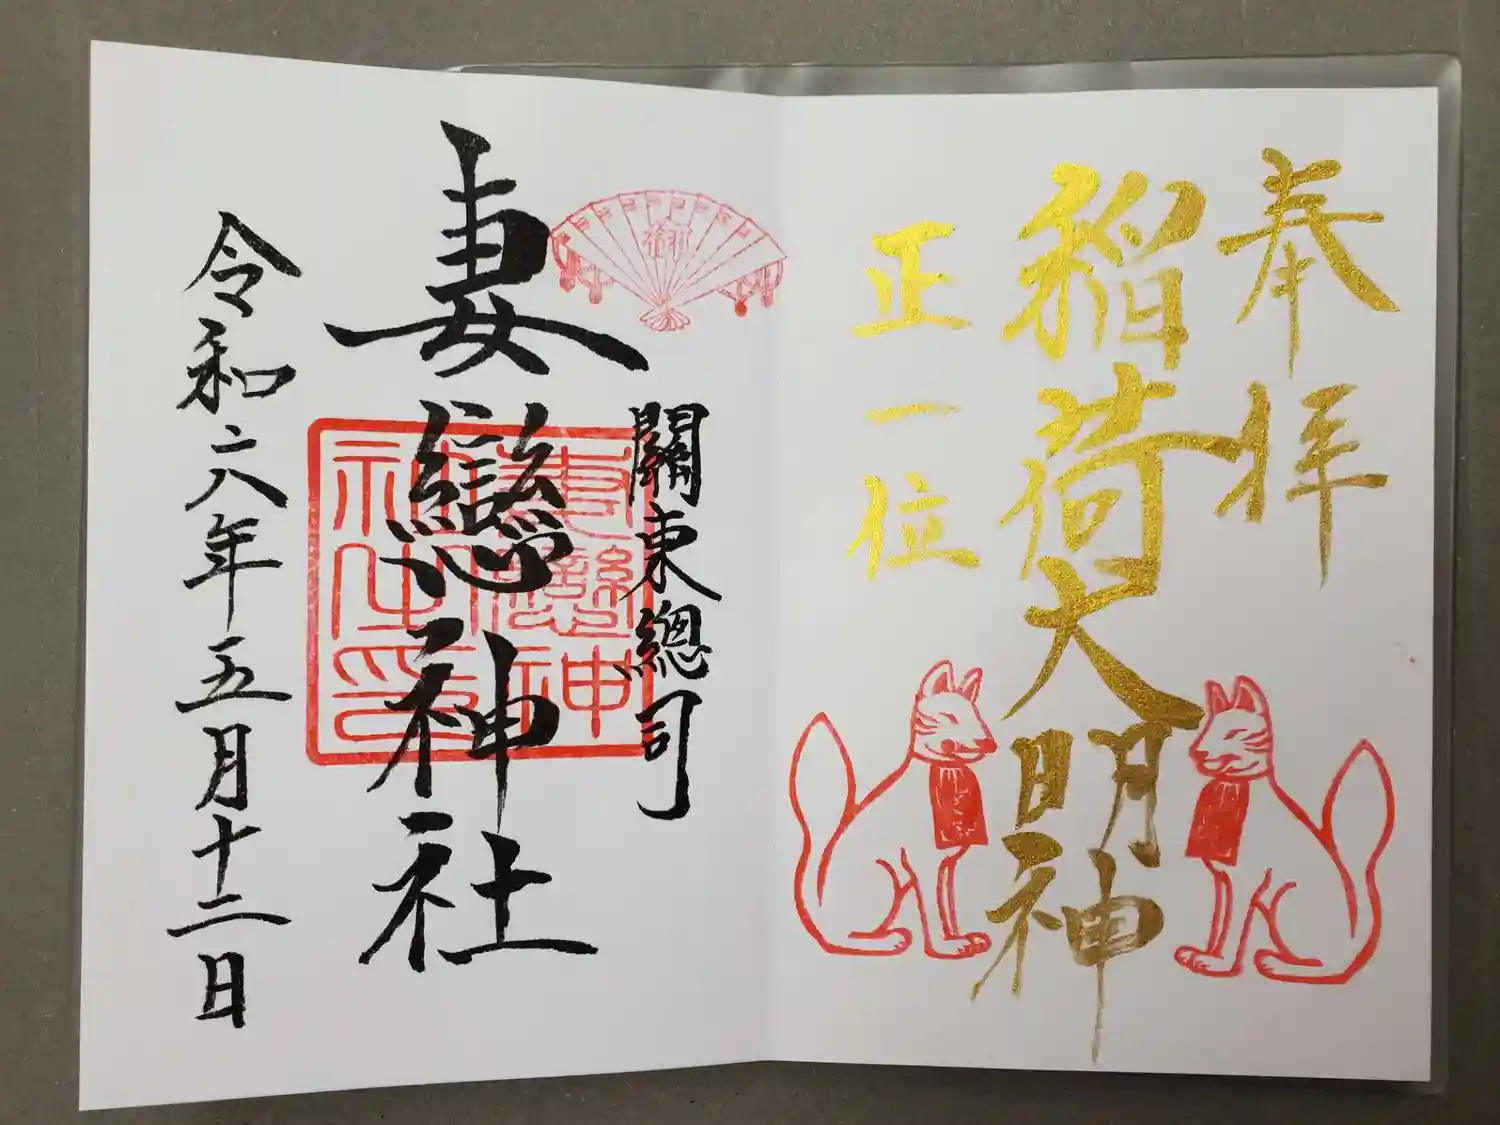 奉拝
稲荷大明神
正一位
御
關東總司
妻戀神社
妻戀神社之印
令和六年五月十二日